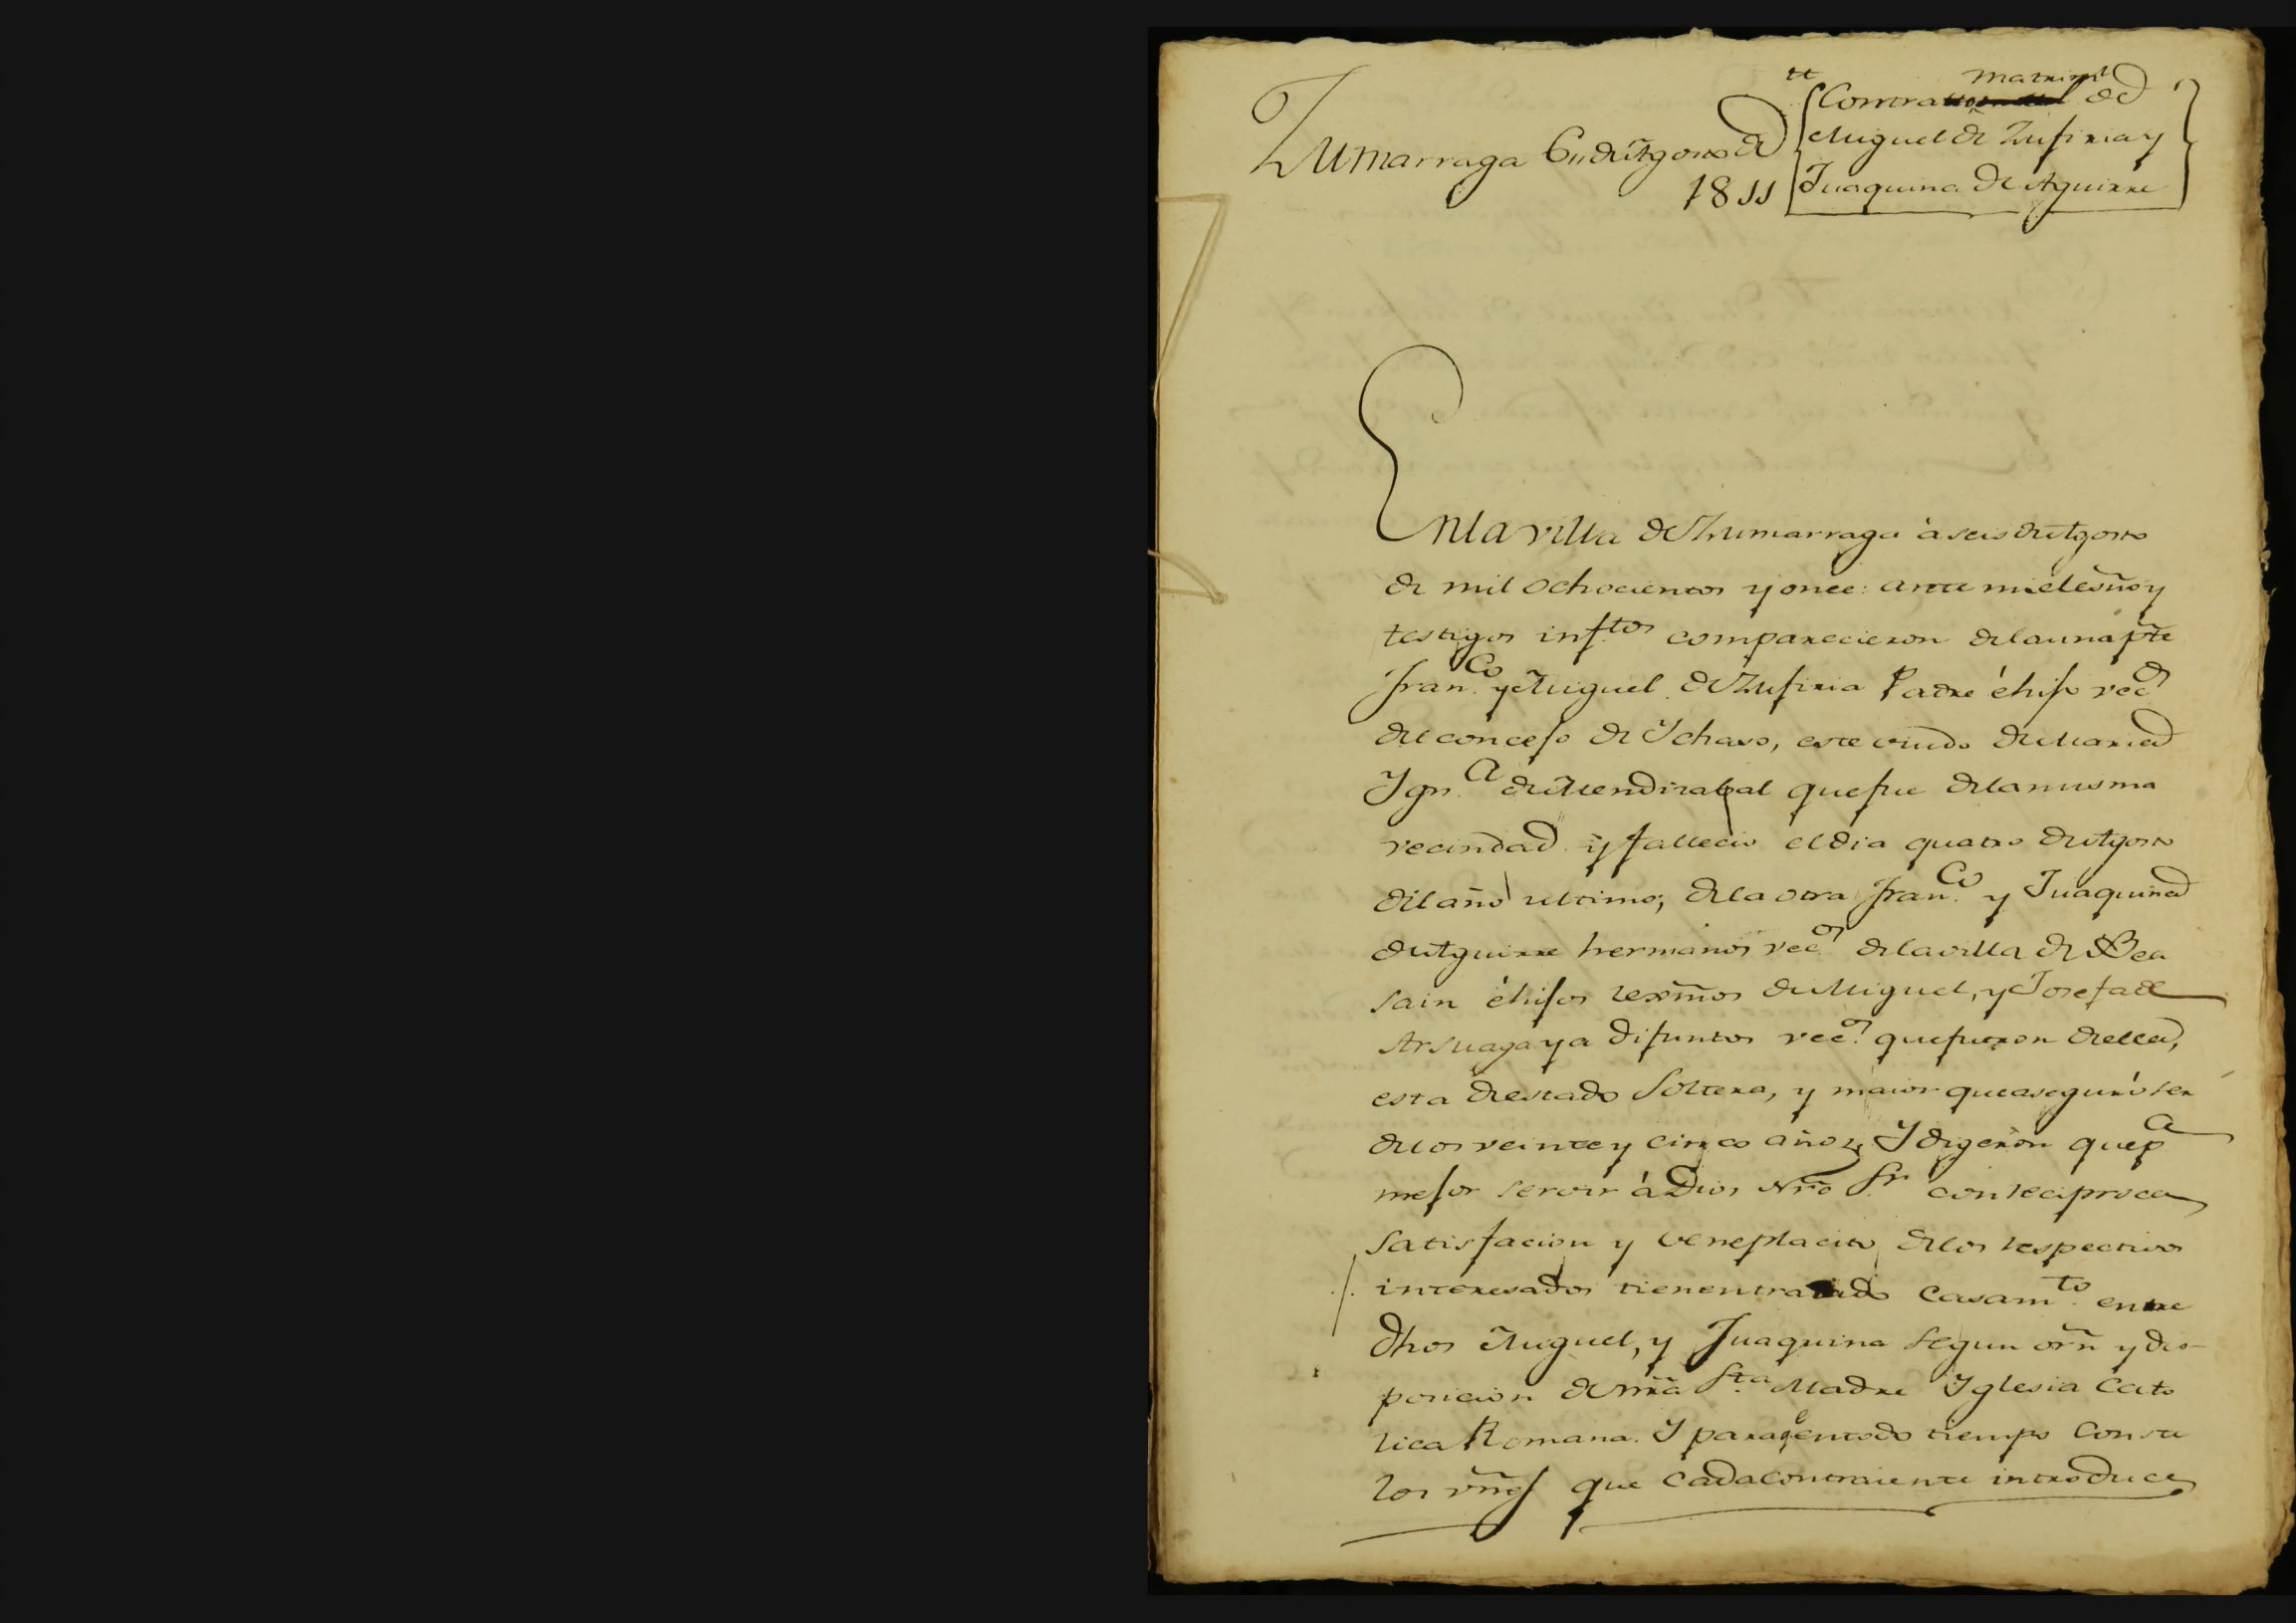 Zumarraga 6,, de Agosto de
1811
tt
matrim.l
Contra de
Miguel de Zufiria y
Juaquina de Aguirre
En la villa de Zumarraga à seis de Agosto
de mil ochocientos y once: ante mi el esño y
testigos infr.tos comparecieron de la una pte
Fran.co y Miguel de Zufiria Padre é hijo vec.s
del concejo de Ychaso, este viudo de Maria
Ygn.a de Mendizabal que fue de la misma
vecindad y fallecio el dia quatro de Agosto
del año ultimo; de la otra Fran.co y Juaquina
de Aguirre hermanos vec.s de la villa de Bea
sain é hijos lexmos de Miguel, y Josefa de
Arsuaga ya difuntos vec.s que fueron de ella,
esta de estado Soltera, y maior que aseguró ser
de los veinte y cinco años; Y digeron que p.a
mejor servir à Dios Nro Sr con reciproca
Satisfacion y veneplacito de los respectivos
interesados tienen tratado Casam.to entre
dhos Miguel, y Juaquina segun orñ y dis-
posicion de nra Sta Madre Yglesia Cato
lica Romana. Y para q.e en todo tiempo Conste
los vñes que cada contraiente introduce